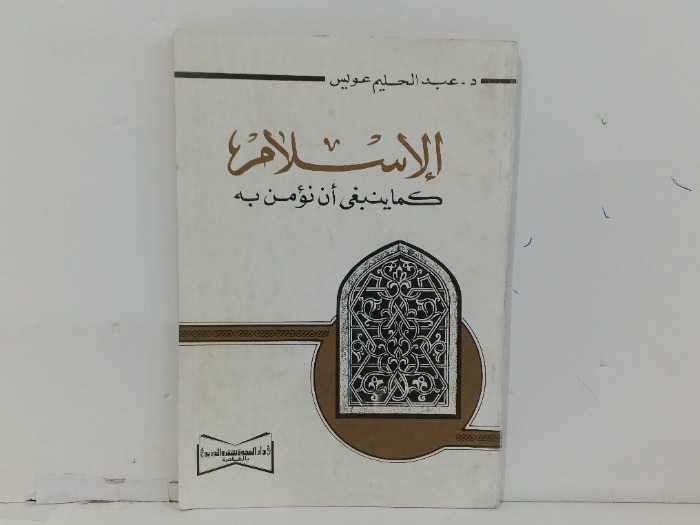 د. عبد الحليم عويس
الإسلام
كما ينبغى أن نؤمن به
دار الصحوة للنشر والتوزيع
بالقاهرة